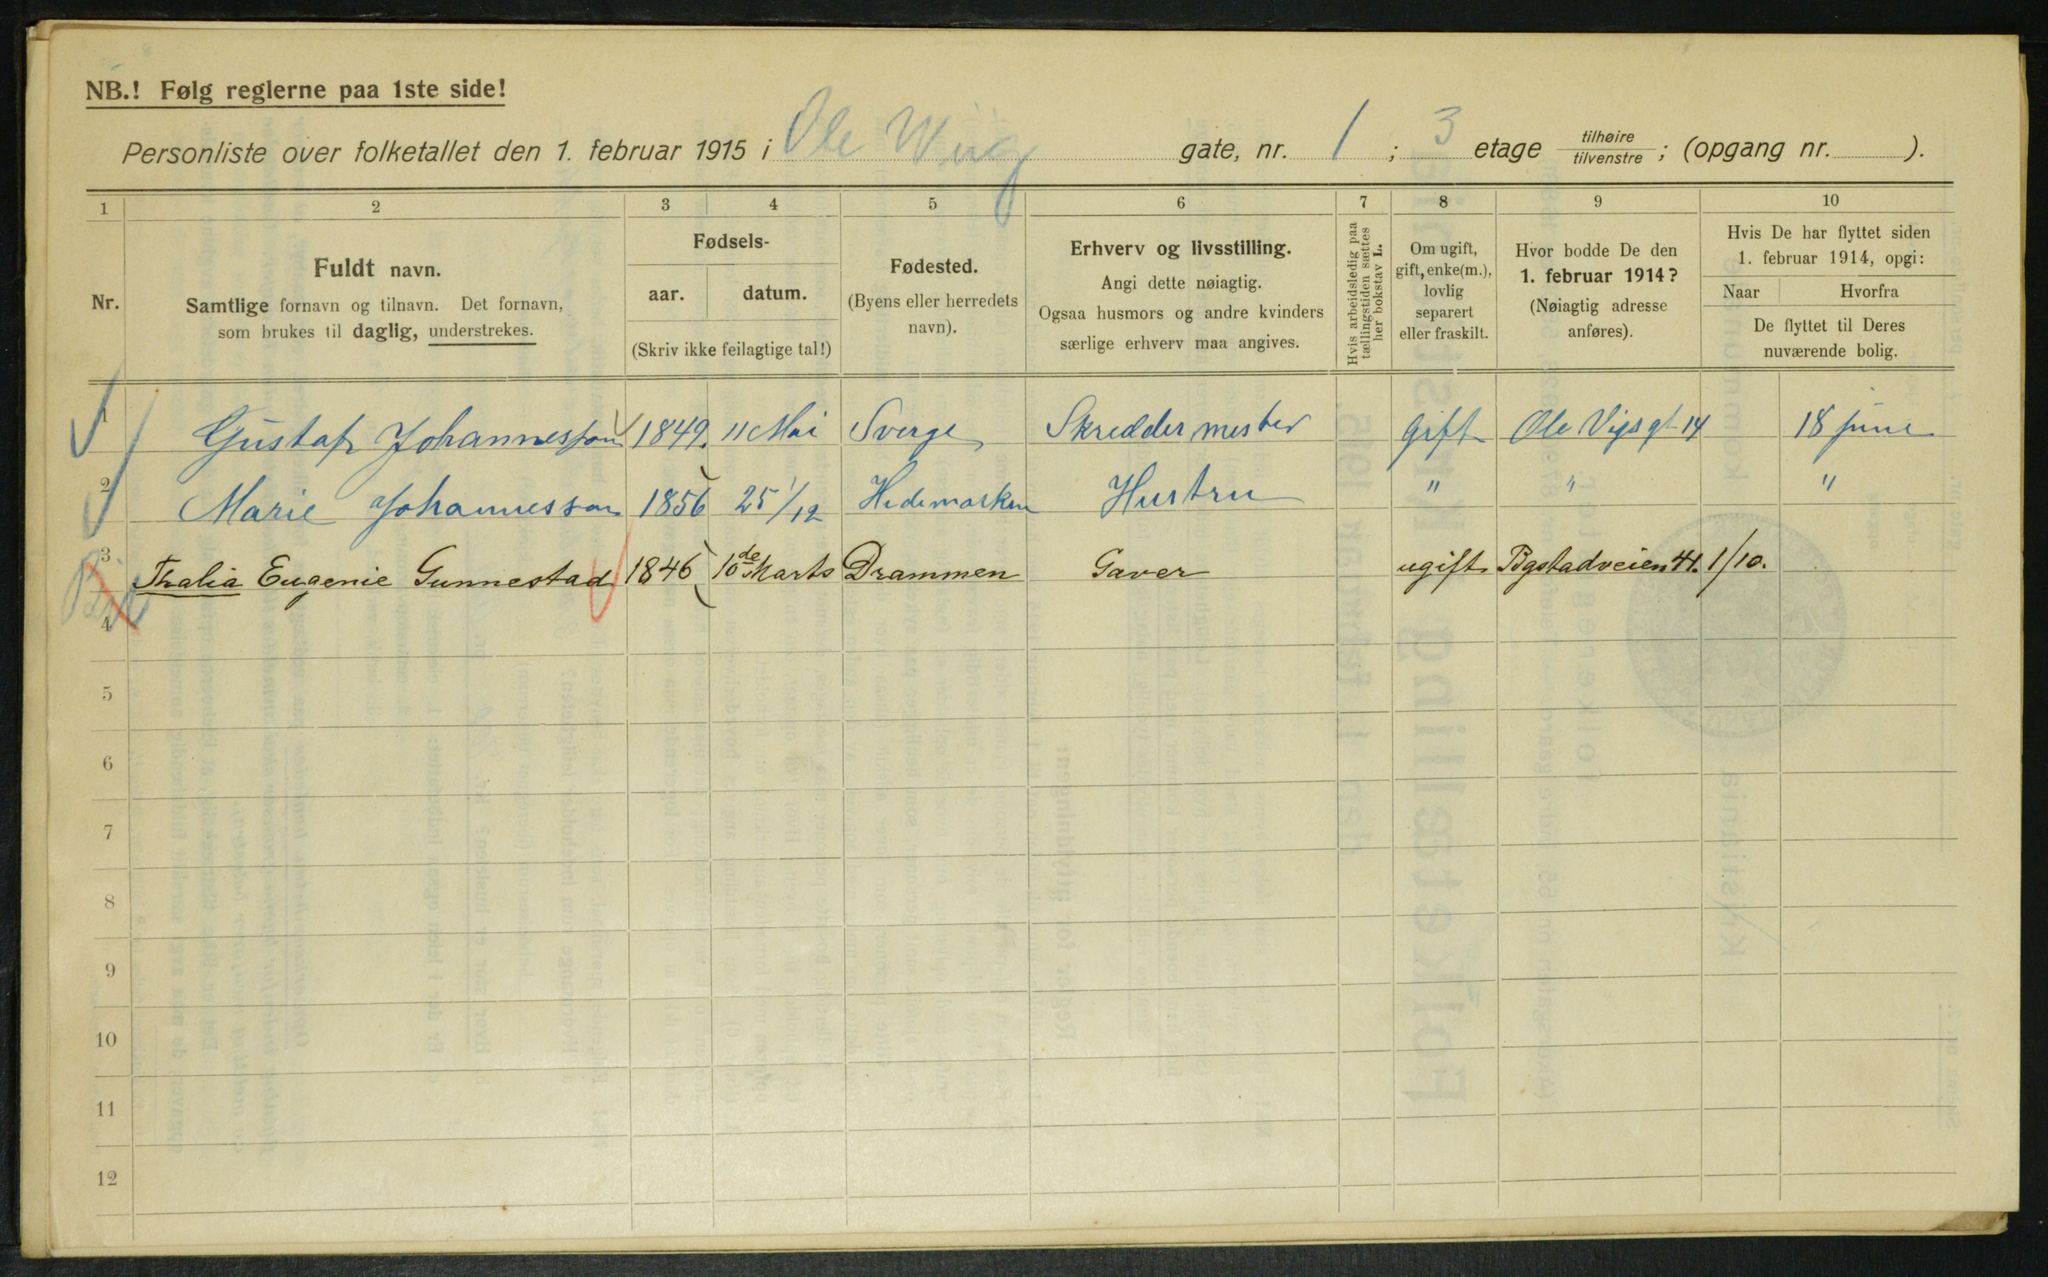 NB.! Følg reglerne paa 1ste side!
Personliste over folketallet den 1. februar 1915 i Ole Wiig gate, nr. 1 ; 3 etage tilhøire tilvenstre ; (opgang nr. ).
1 2 3 4 5 6 7 8 9 10
Nr.
Fuldt navn.
Samtlige fornavn og tilnavn. Det fornavn,
som brukes til daglig, understrekes.
Fødsels-
aar. datum.
(Skriv ikke feilagtige tal!)
Fødested.
(Byens eller herredets
navn).
Erhverv og livsstilling.
Angi dette nøiagtig.
Ogsaa husmors og andre kvinders
særlige erhverv maa angives.
Hvis arbeidsledig paa
tællingstiden sættes
her bokstav L.
Om ugift,
gift, enke(m.),
lovlig
separert
eller fraskilt.
Hvor bodde De den
1. februar 1914?
(Nøiagtig adresse
anføres).
Hvis De har flyttet siden
1. februar 1914, opgi:
Naar Hvorfra
De flyttet til Deres
nuværende bolig.
1 Gustaf Johannesson 1849. 11 Mai Sverge Skreddermester Gift Ole Vigsgt 14 18 juni
2 Marie Johannesson 1856 25/12 Hedemarken Hustru " " "
3 Thalia Eugenie Gunnestad 1846 10de Marts Drammen Gaver ugift Bgstadveien 41. 1/10.
4
5
6
7
8
9
10
11
12